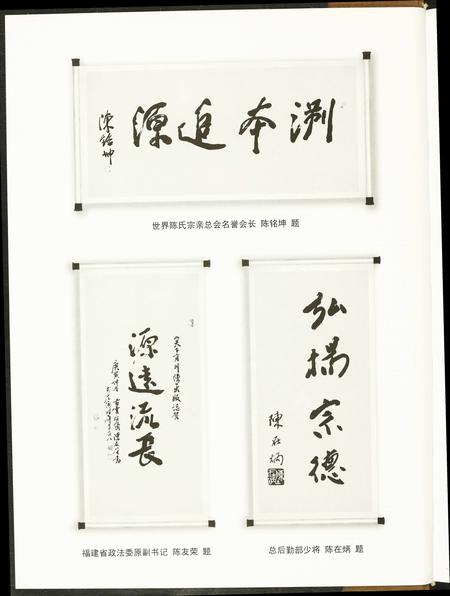 溯本追源
陳銘坤
世界陈氏宗亲总会名誉会长 陈铭坤 题
源遠流長
福建省政法委原副书记 陈友荣 题
弘揚宗德
陳在炳
总后勤部少将 陈在炳 题